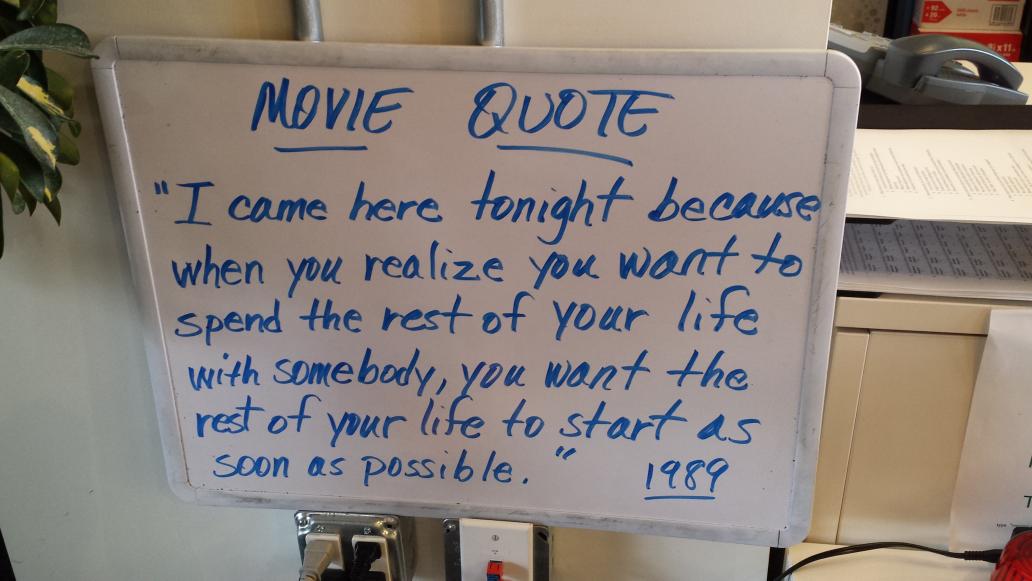 MOVIE QUOTE
"I came here tonight because
when you realize you want to
spend the rest of your life
with somebody, you want the
rest of your life to start as
soon as possible."
1989